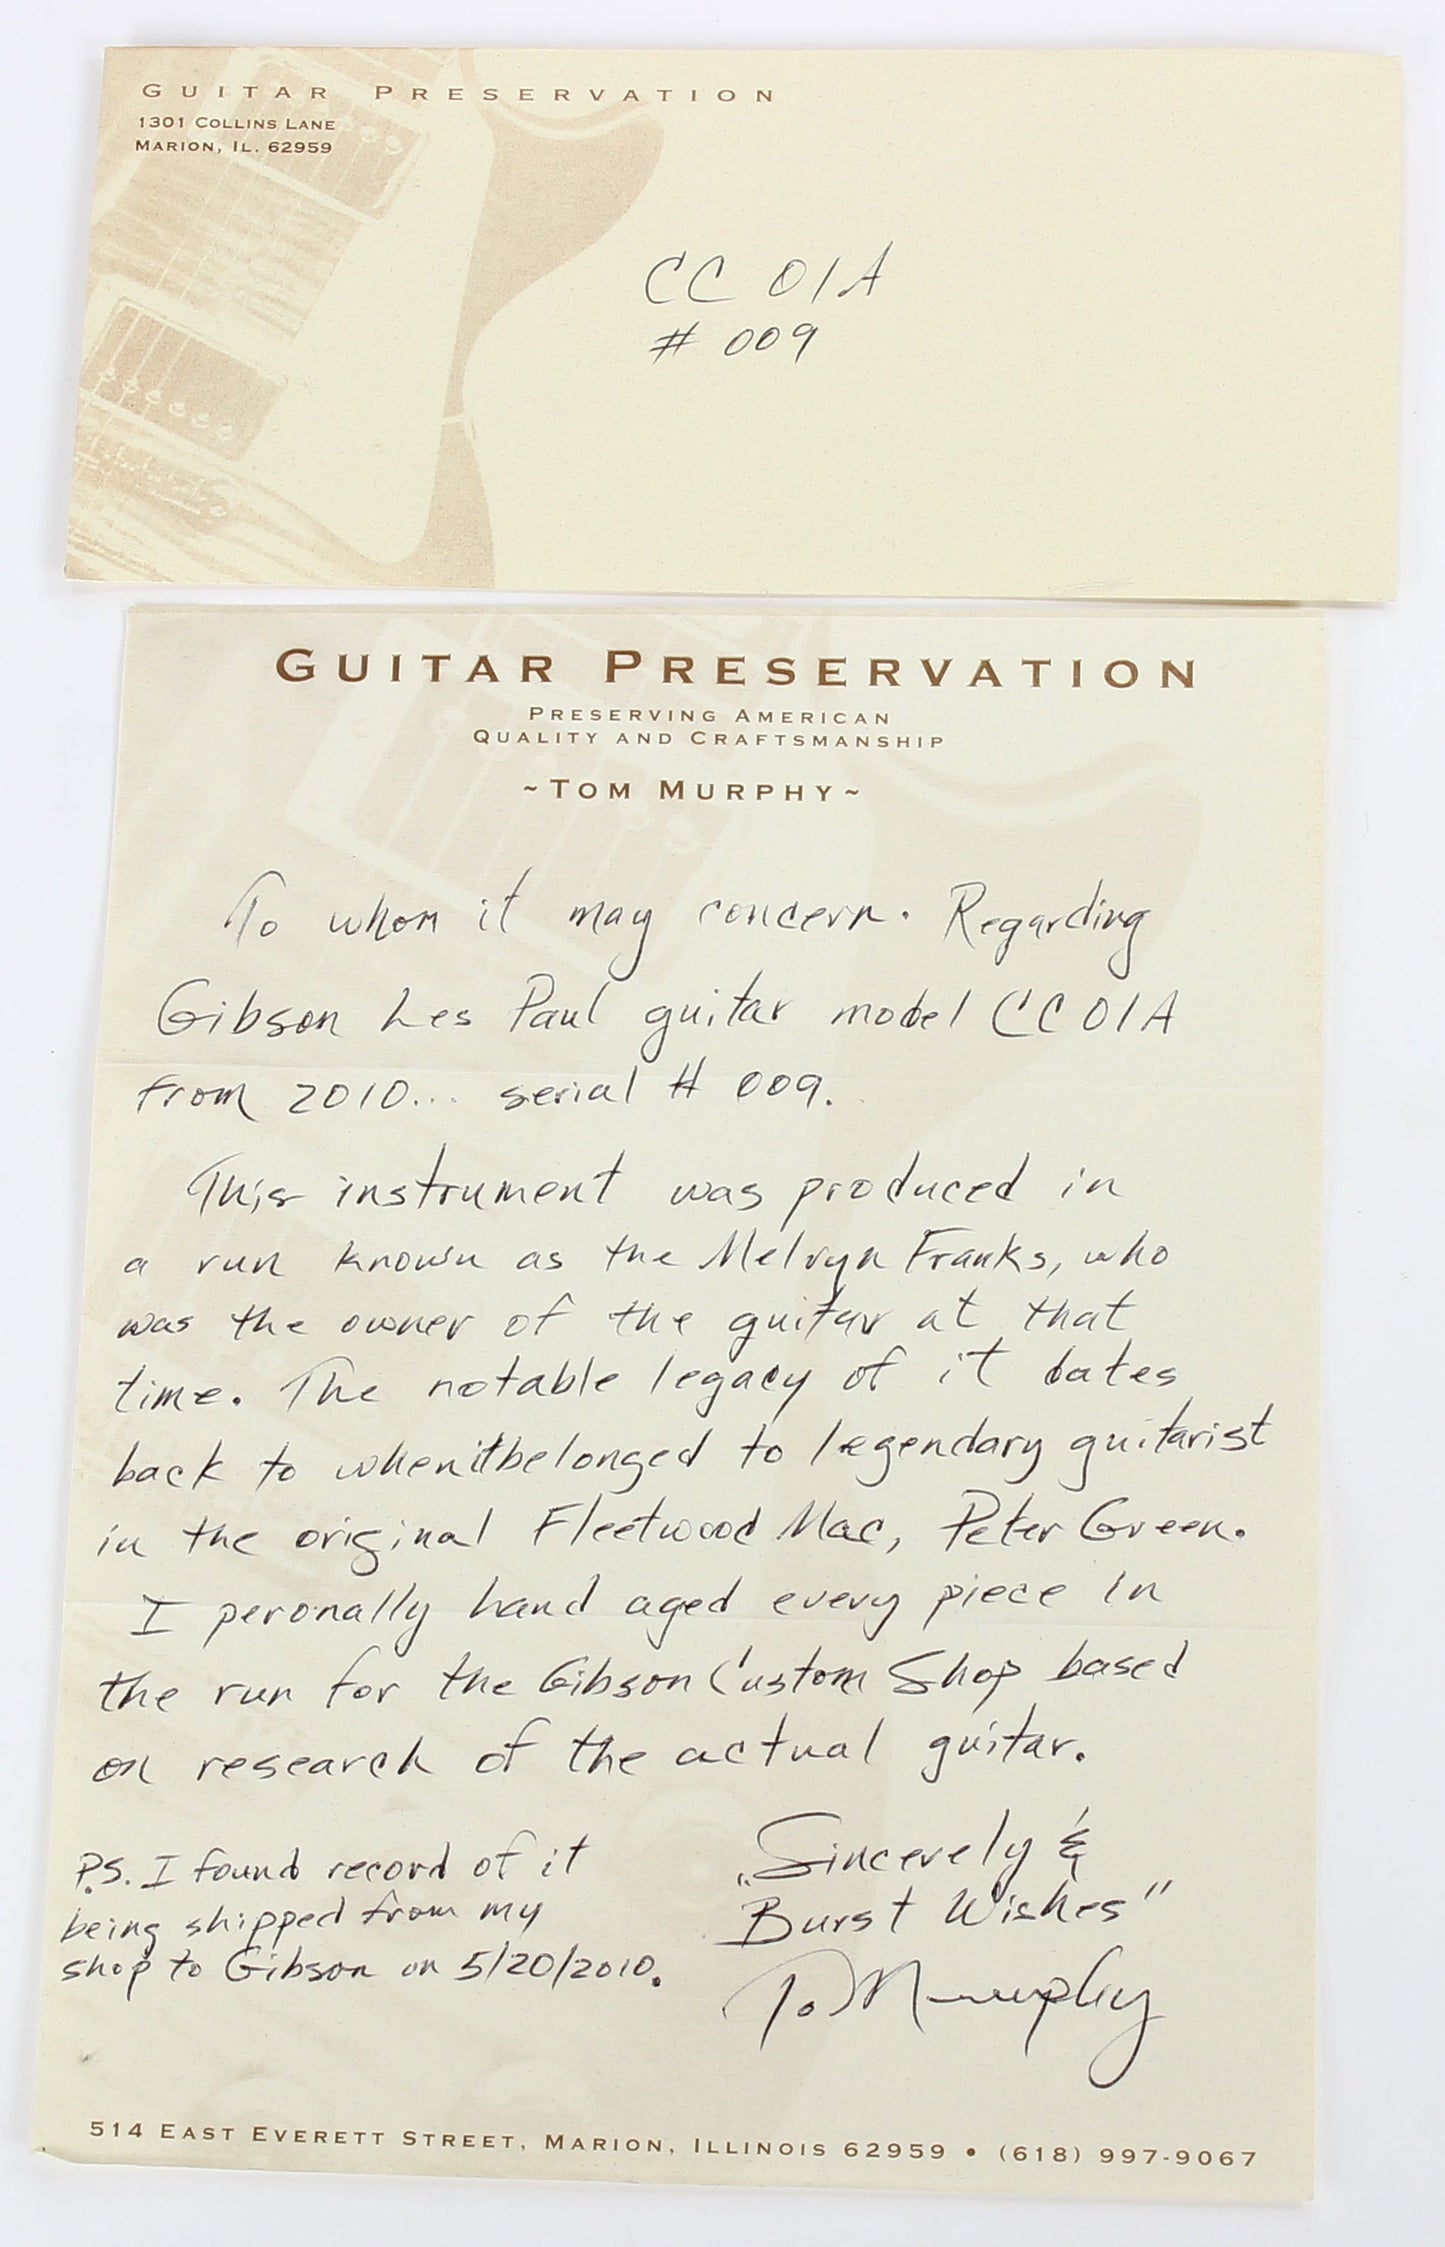 GUITAR PRESERVATION
1301 COLLINS LANE
MARION, IL. 62959
CC 01A
# 009
GUITAR PRESERVATION
PRESERVING AMERICAN
QUALITY AND CRAFTSMANSHIP
~TOM MURPHY~
To whom it may concern. Regarding
Gibson Les Paul guitar model CC01A
from 2010... serial # 009.
This instrument was produced in
a run known as the Melvyn Franks, who
was the owner of the guitar at that
time. The notable legacy of it dates
back to when it belonged to legendary guitarist
in the original Fleetwood Mac, Peter Green.
I peronally hand aged every piece in
the run for the Gibson Custom Shop based
on research of the actual guitar.
P.S. I found record of it
being shipped from my
shop to Gibson on 5/20/2010.
"Sincerely &
Burst Wishes"
To Murphy
514 EAST EVERETT STREET, MARION, ILLINOIS 62959 • (618) 997-9067